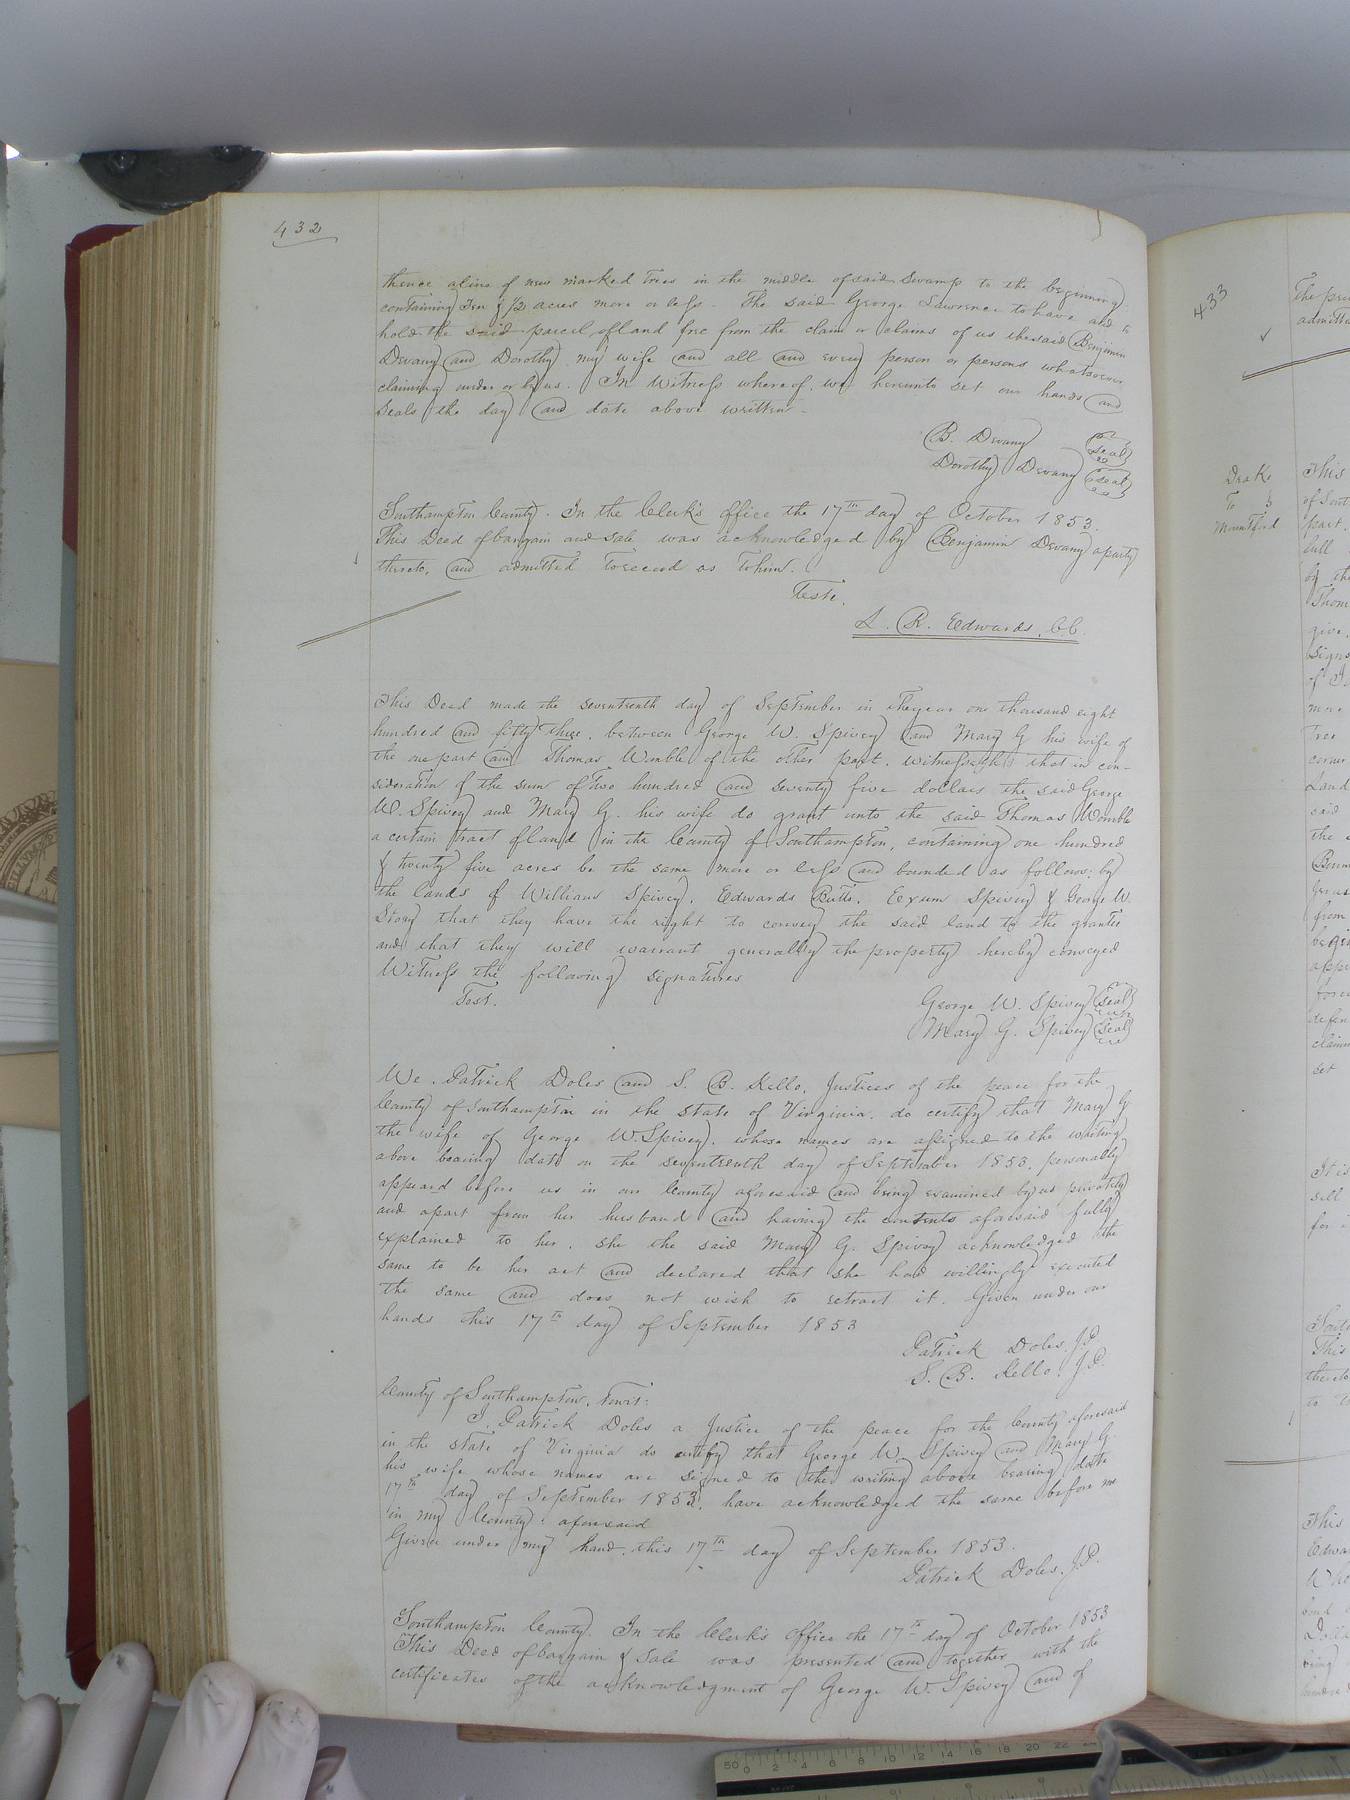 432
thence a line of new marked trees in the middle of said Swamp to the beginning
containing Ten & 1/2 acres more or less. The said George Lawrence to have and to
hold the said parcel of land free from the claim or claims of us the said Benjamin
Devany and Dorothy my wife and all and every person or persons whatsoever
claiming under or by us. In Witness whereof we hereunto set our hands and
seals the day and date above written.
B. Devany Seal
Dorothy Devany Seal
Southampton County. In the Clerk's office the 17th day of October 1853.
This Deed of bargain and sale was acknowledged by Benjamin Devany a party
thereto, and admitted to record as to him.
Teste.
L. R. Edwards, C.C.
This Deed made the seventeenth day of September in the year one thousand eight
hundred and fifty three, between George W. Spivey and Mary G his wife of
the one part and Thomas Womble of the other part. Witnesseth that in con-
sideration of the sum of Two hundred and seventy five dollars the said George
W. Spivey and Mary G. his wife do grant unto the said Thomas Womble
a certain tract of land in the County of Southampton, containing one hundred
& twenty five acres be the same more or less and bounded as follows; by
the lands of William Spivey, Edwards Butts, Exum Spivey & George W.
Story that they have the right to convey the said land to the grantee
and that they will warrant generally the property hereby conveyed
Witness the following signatures
Test.
George W. Spivey Seal
Mary G. Spivey Seal
We, Patrick Doles and S. B. Kello, Justices of the peace for the
County of Southampton in the State of Virginia, do certify that Mary G
the wife of George W. Spivey, whose names are assigned to the writing
above bearing date on the seventeenth day of September 1853, personally
appeard before us in our County aforesaid and being examined by us privately
and apart from her husband and having the contents aforesaid fully
explained to her, she the said Mary G. Spivey acknowledged the
same to be her act and declared that she had willingly executed
the same and does not wish to retract it. Given under our
hands this 17th day of September 1853
Patrick Doles. J.P.
S. B. Kello. J.P.
County of Southampton, towit:
I, Patrick Doles a Justice of the peace for the County aforesaid
in the State of Virginia do certify that George W. Spivey and Mary G.
his wife whose names are signed to the writing above bearing date
17th day of September 1853, have acknowledged the same before me
in my County aforesaid
Given under my hand, this 17th day of September 1853.
Patrick Doles. J.P.
Southampton County. In the Clerk's Office the 17th day of October 1853
This Deed of bargain & Sale was presented and together with the
certificates of the acknowledgment of George W. Spivey and of
433
The
admitted
Drake
To
Mountford
This
part.
full
by the
Thom
give,
more
Free
corner
Land
said
the
from
appe
defen
claim
set
It is
sell
for
This
to
This
Edwa